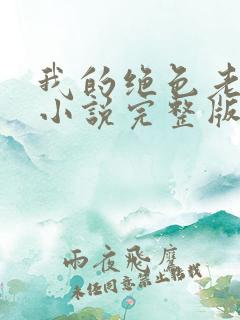 我的绝色老
小说完整版
雨夜飞魔
未经同意禁止转载